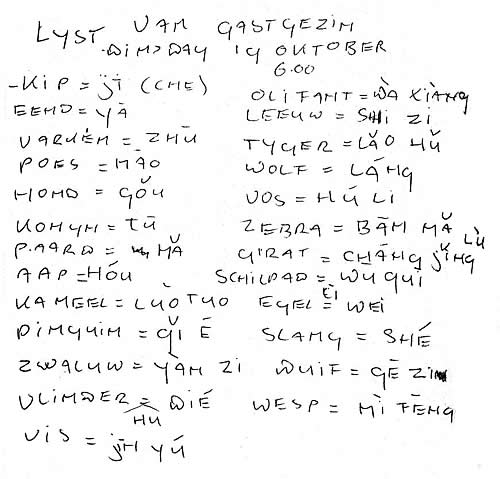 LYST VAN GASTGEZIN
DINSDAY 19 OKTOBER
6.00
-KIP = jī (CHE)
OLIFANT = DÀ XIÀNG
EEND = YĀ
LEEUW = SHI ZI
VARKEN = ZHŪ
TYGER = LǍO HǓ
POES = MĀO
WOLF = LÁNG
HOND = GǑU
VOS = HÚ LI
KONYN = TÙ
ZEBRA = BĀN MǍ
PAARD = MǍ
GIRAF = CHÁNG jǏNG LÙ
AAP = HÓU
SCHILPAD = WU GUI
KAMEEL = LUÒ TUO
EGEL = WEI
PINGUIN = QǏ É
SLANG = SHÉ
ZWALUW = YÀN ZI
DUIF = GĒ ZI
VLINDER = DIÉ
HU
WESP = MÌ FĒNG
VIS = jīN YÚ